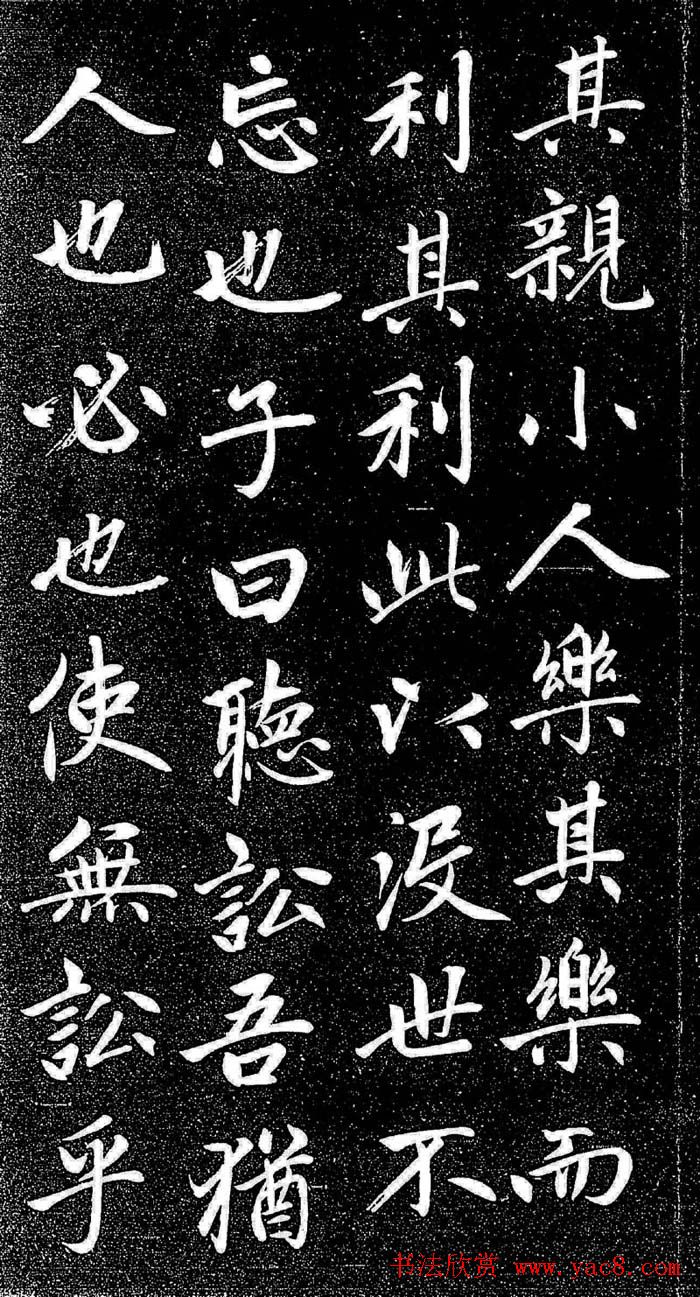 其親小人樂其樂而
利其利此以沒世不
忘也子曰聽訟吾猶
人也必也使無訟乎
书法欣赏 www.yac8.com